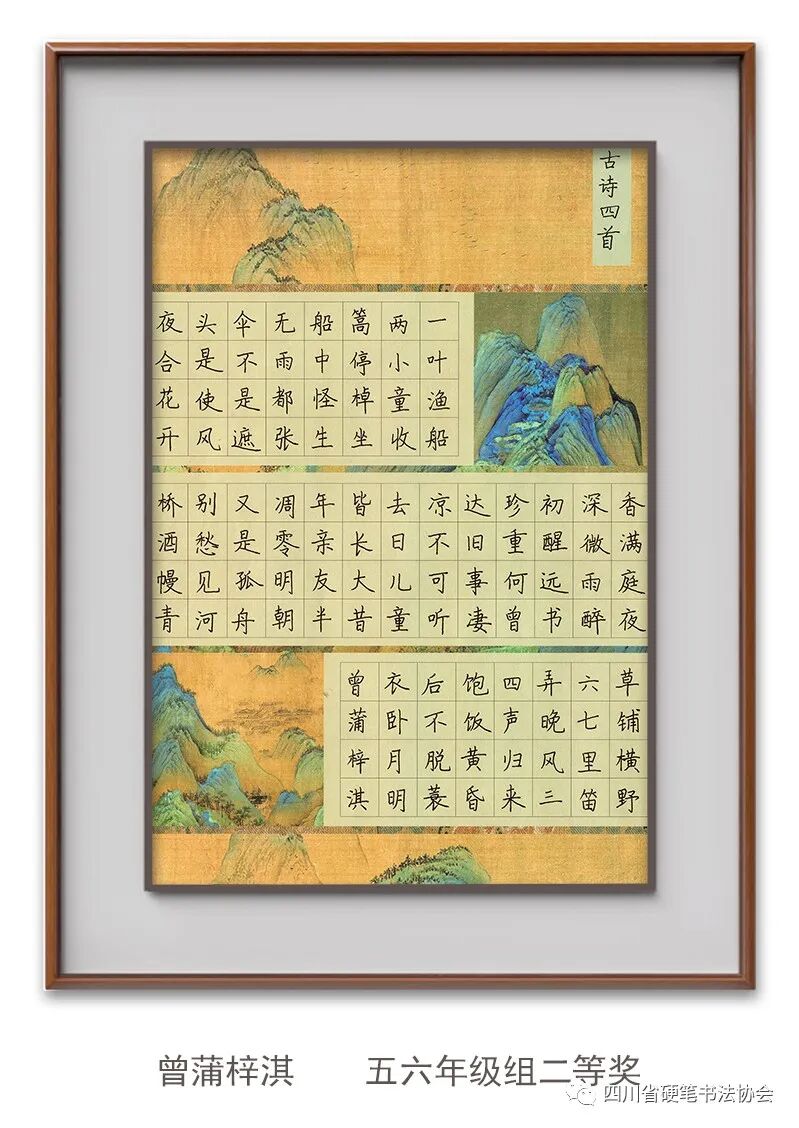 古诗四首
一叶渔船
两小童收
篙停棹坐
船中怪生
无雨都张
伞不是遮
头是使风
夜合花开
香满庭夜
深微雨醉
初醒远书
珍重何曾
达旧事凄
凉不可听
去日儿童
皆长大昔
年亲友半
凋零明朝
又是孤舟
别愁见河
桥酒幔青
草铺横野
六七里笛
弄晚风三
四声归来
饱饭黄昏
后不脱蓑
衣卧月明
曾蒲梓淇
曾蒲梓淇 五六年级组二等奖
四川省硬笔书法协会